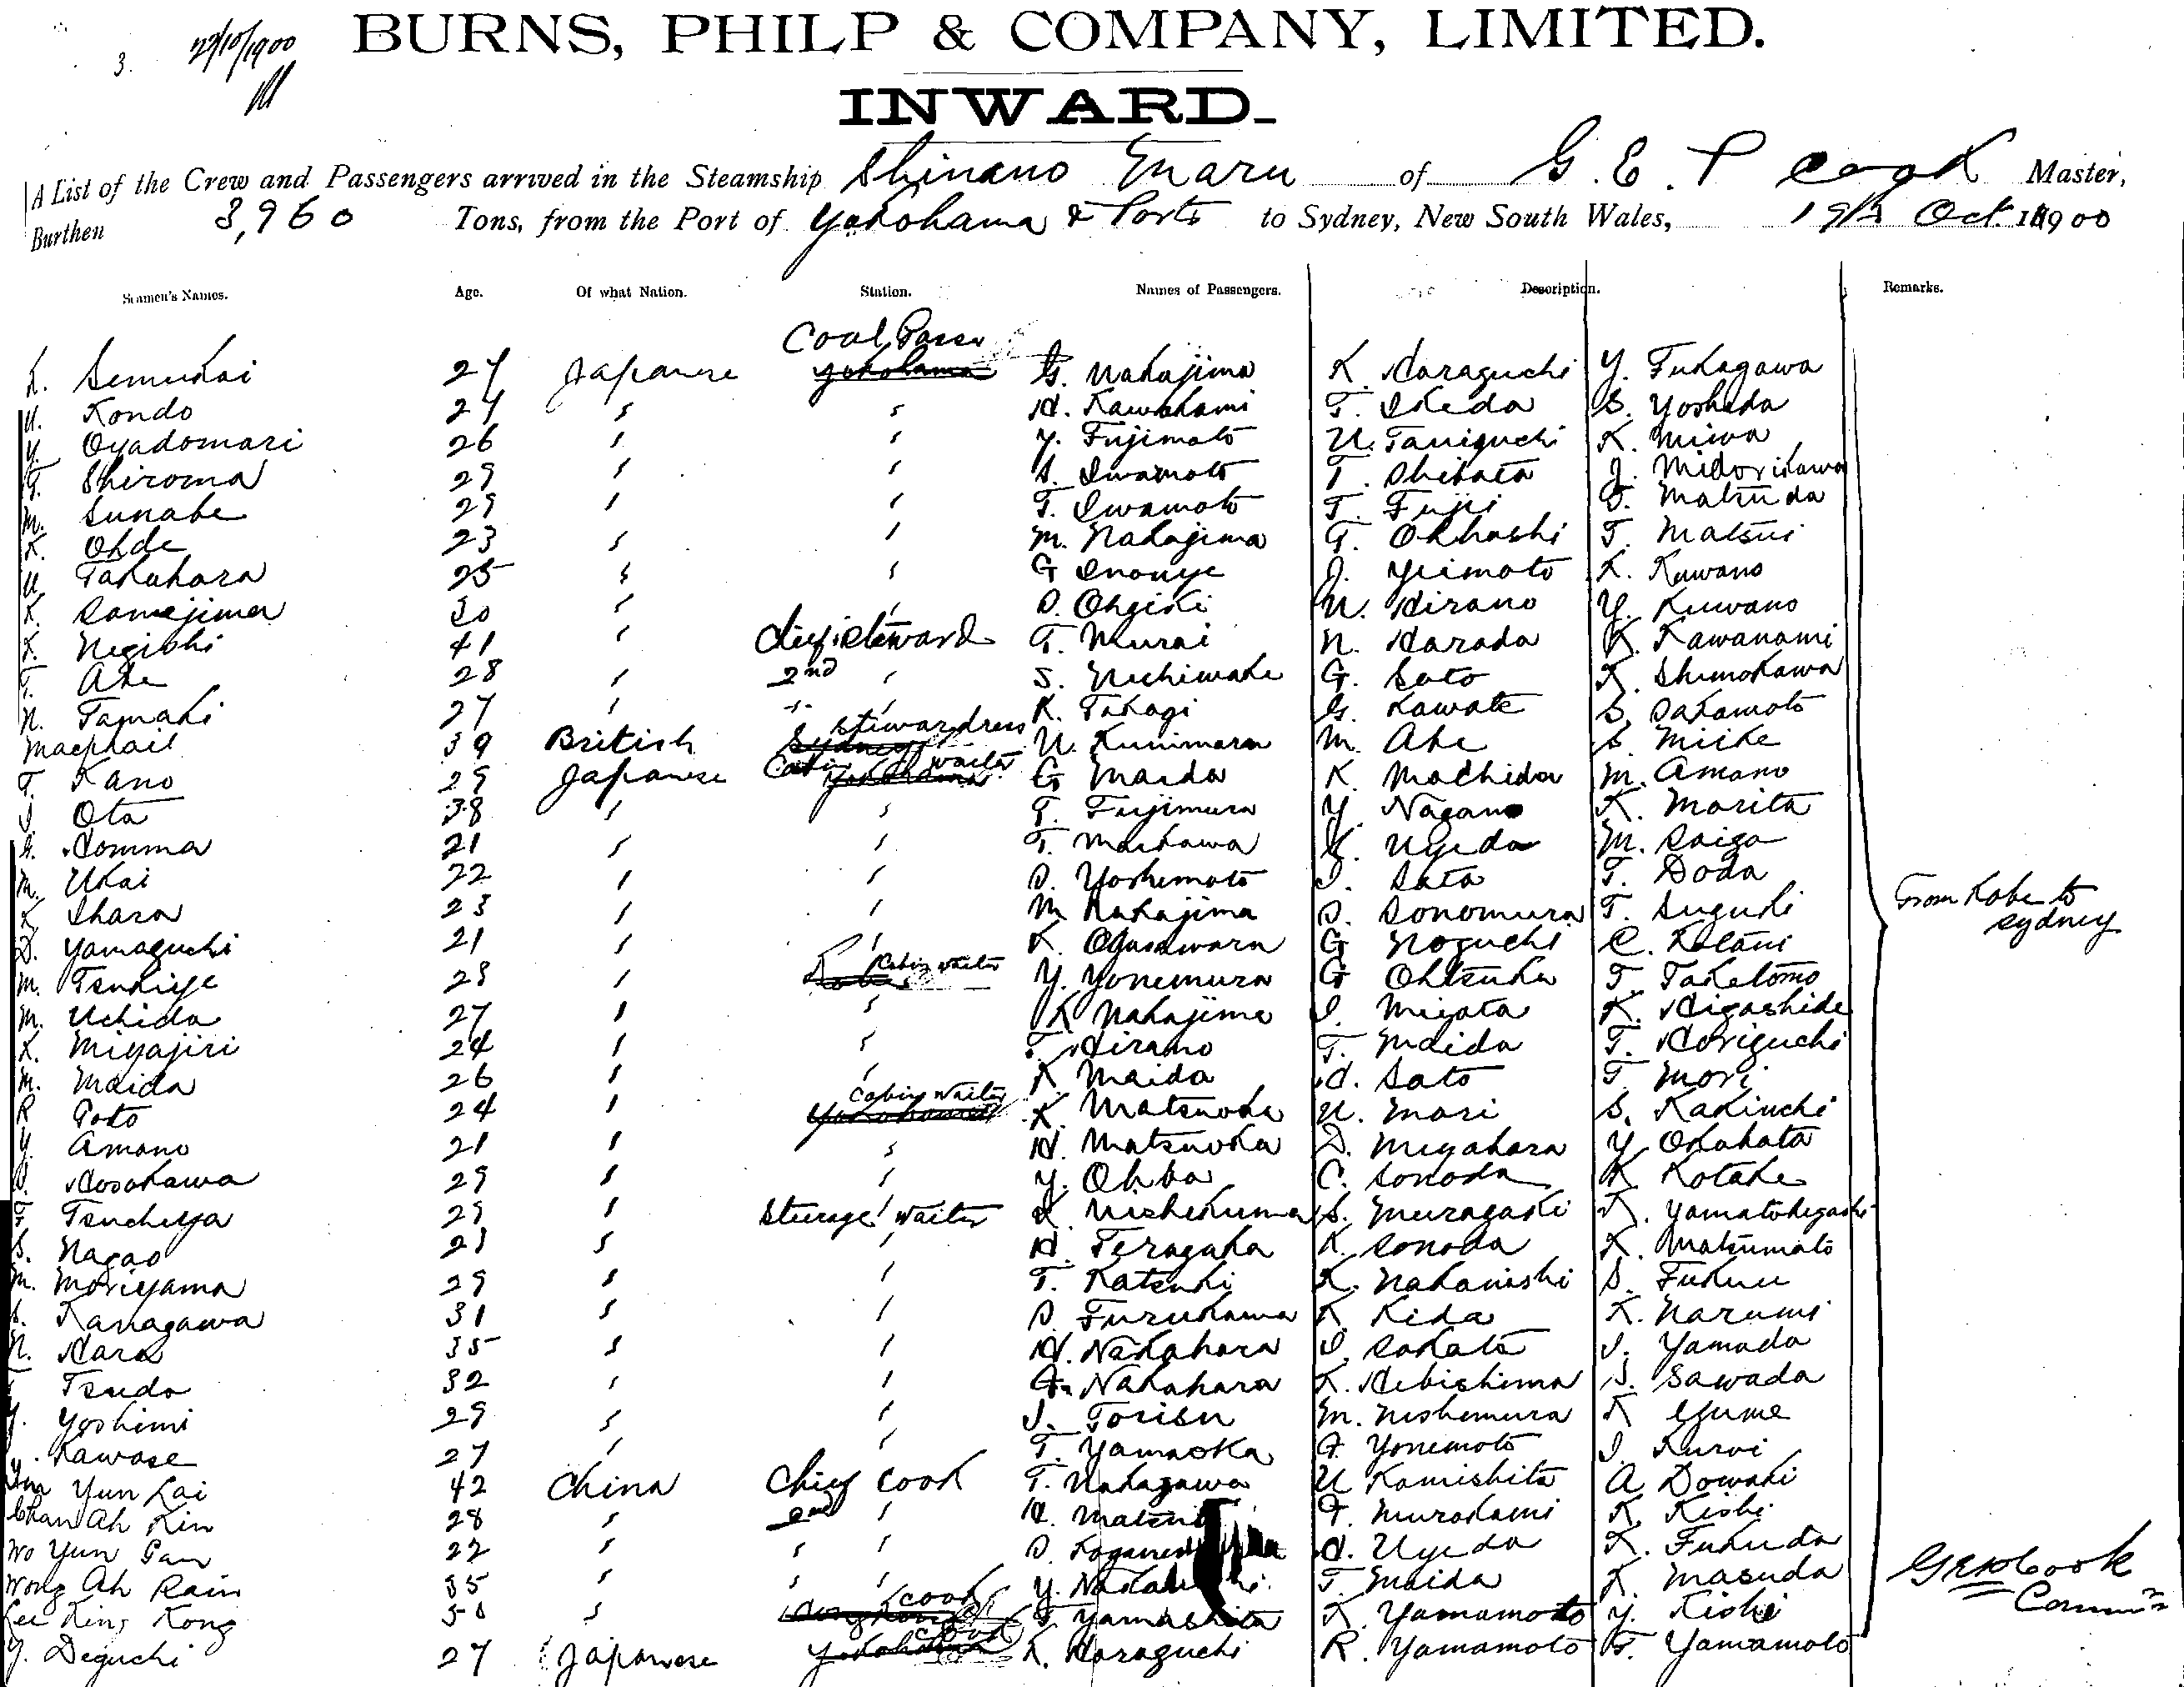 3. 22/10/1900
BURNS, PHILP & COMPANY, LIMITED.
INWARD.
A List of the Crew and Passengers arrived in the Steamship Shinano Maru of G. E. P Cook Master,
Burthen 3,960 Tons, from the Port of Yokohama & Ports to Sydney, New South Wales, 19th Oct. 1900
Seamen's Names. Age. Of what Nation. Station. Names of Passengers. Description. Remarks.
Coal Passer
K. Semukai 27 Japanese Yokohama G. Nakajima K. Haraguchi Y. Fukagawa
U. Kondo 27 " " H. Kawakami T. Ikeda S. Yoshida
Y. Oyadomari 26 " " Y. Fujimoto U. Taniguchi K. Miwa
T. Shiroma 29 " " S. Iwamoto T. Shibata J. Midorikawa
M. Sunabe 29 " " T. Iwamoto T. Fujii S. Matsuda
K. Ohde 23 " " M. Nakajima T. Ohhashi T. Matsui
U. Takahara 25 " " G Inouye J. Yeimoto K. Kuwano
K. Samejima 30 " " S. Ohgiki U. Hirano Y. Kuwano
K. Negishi 41 " Chief Steward T. Murai N. Harada K. Kawanami
T. Abe 28 " 2nd " S. Uechiwake G. Sato K. Shimokawa
N. Tamaki 27 " " K. Takagi G. Kawate S. Sakamoto
Macphail 39 British Sydney Stewardess U. Kunimara M. Abe S. Miike
T. Kano 29 Japanese Cabin waiter Yokohama G Maida K Machida M. Amano
I Ota 38 " " T. Fujimura Y. Nagano K. Morita
H. Homma 21 " " T. Maikawa K. Uyeda M. Saigo
M. Ukai 22 " " S. Yoshimoto I. Sata T. Doda
K. Ihara 23 " " M Nakajima S. Sonomura T. Suguki
S. Yamaguchi 21 " " K. Ogasawara G Noguchi C. Kotani
M. Tsukiye 23 " Kobe Cabin waiter Y. Yonemura G Ohtsuka T. Taketomo
M. Uchida 27 " " K Nakajima I. Miyata K. Higashide
K. Miyajiri 24 " " T. Hirano T. Maida T. Horiguchi
M. Maida 26 " " K Maida H. Sato T Mori
R Goto 24 " Cabin waiter Yokohama K. Matsuoka U. Mori S. Kakiuchi
Y. Amano 21 " " H. Matsuoka D. Miyahara Y Okahata
S. Hosokawa 29 " " Y. Ohba C. Sonoda K Kotake
T Tsuchiya 29 " Steerage Waiter K Nishikuma S. Muragaki K. Yamatohigashi
S. Nagao 23 " " H. Teragaka K. Sonoda K. Matsumoto
M. Moriyama 29 " " T. Katsuki K. Nakanishi S. Fukui
S. Kanagawa 31 " " S Furukawa K. Kida K. Narumi
N. Hara 35 " " H. Nakahara I. Sakata I. Yamada
Tsuda 32 " " G. Nakahara K. Hebishima S. Sawada
Y. Yoshimi 29 " " I. Torisu M. Nishimura K Ezume
Y. Kawase 27 " " T. Yamaoka F. Yonemoto I. Kuroi
Yun Kai 42 China Chief Cook T. Nakagawa U Kamishita A Dowaki
Chan Ah Kin 28 " 2nd " F. Murakami K Kishi
Wo Yun Gan 22 " " " H. Uyeda K. Fukuda
Wong Ah Rain 35 " " " T. Maida K. Masuda
Lee King Kong 50 " Hong Kong cook T Yamashita K. Yamamoto Y. Kishi
Y. Deguchi 27 Japanese Yokohama cook K. Haraguchi R. Yamamoto T. Yamamoto
From Kobe to
Sydney
G E P Cook